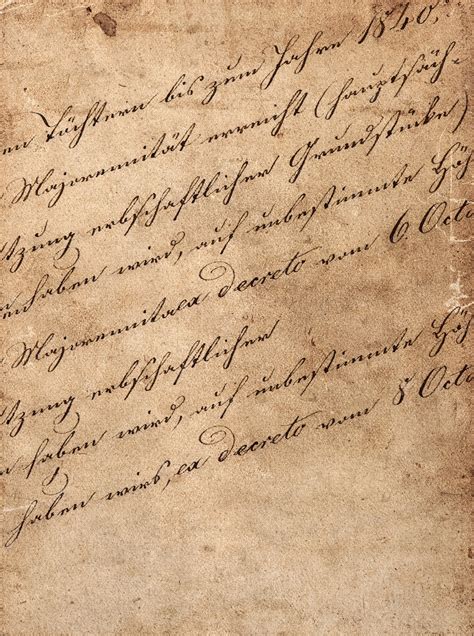 en Töchtern bis zum Jahre 1840.
Majorennität erreicht (hauptsäch-
tzung erbschaftlicher Grundstücke)
en haben wird, auf unbestimmte Hö
Majorennita ex decreto vom 6 Octo
tzung erbschaftlicher
n haben wird, auf unbestimmte Hö
haben wirs, ex decreto vom 8 Octo